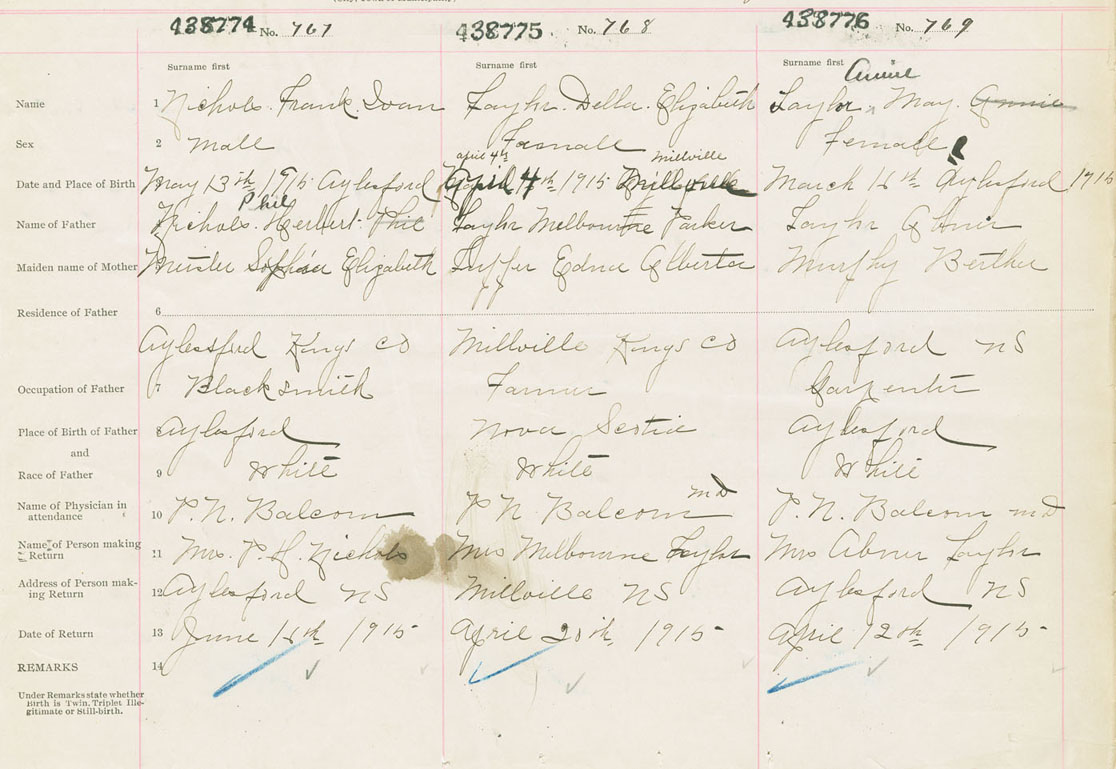 438774 No. 767 438775 No. 768 438776 No. 769
Surname first Surname first Surname first Annie
Name 1 Nichols. Frank. Ivan Taylor. Della. Elizabeth Taylor May. Annie
Sex 2 Male Female Female
april 4th millville
Date and Place of Birth May 13th 1915 Aylesford April 4th 1915 Millville March 16th Aylesford 1915
Phil
Name of Father Nichols. Herbert. Phil Taylor Melbourne Parker Taylor Abner
Maiden name of Mother Meister Sophia Elizabeth Edna Alberta Murphy Bertha
Residence of Father 6
Aylesford Kings Co Millville Kings Co Aylesford NS
Occupation of Father 7 Blacksmith Farmer Carpenter
Place of Birth of Father 8 Aylesford Nova Scotia Aylesford
and
Race of Father 9 White White White
Name of Physician in attendance 10 P. N. Balcom P N Balcom MD P. N. Balcom MD
Name of Person making Return 11 Mrs. P. H. Nichols Mrs Melbourne Taylor Mrs Abner Taylor
Address of Person making Return 12 Aylesford NS Millville NS Aylesford NS
Date of Return 13 June 16th 1915 April 20th 1915 April 12th 1915
REMARKS 14
Under Remarks state whether
Birth is Twin. Triplet Ille-
gitimate or Still-birth.